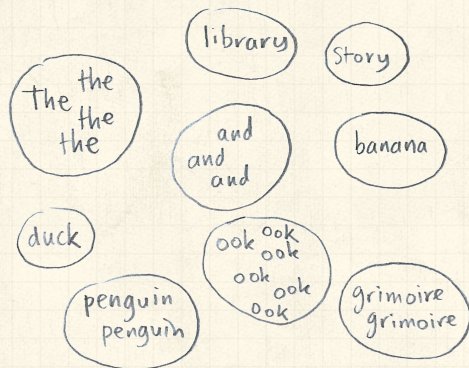 library
Story
the
The
the
the
and
and
and
banana
duck
ook ook
ook
ook
ook
ook
penguin
penguin
grimoire
grimoire